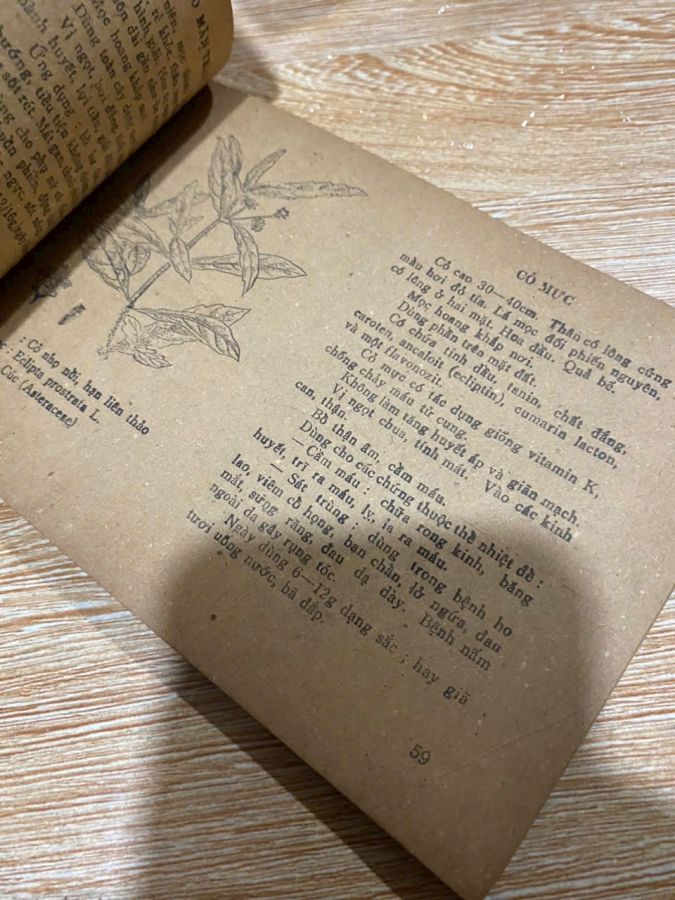 CỎ MÀN T
niên, mọc
rẻ khô
hình giải. Hoa
ọc hoang khắp
Dùng toàn cây
Vị ngọt,
hành huyết, lợi tiểu
Ứng dụng
đướng, tiêu
sốt rét. Má
cho phụ nữ
phiền,
ngực,
12/16g
: Cỏ nhọ nồi, hạn liên thảo
: Eclipta prostrata L.
Cúc (Asteraceae)
CỎ MỰC
Cỏ cao 30—40cm. Thân có lông cứng
màu hơi đỏ tía. Lá mọc đối phiến nguyên,
có lông ở hai mặt. Hoa đầu. Quả bế.
Mọc hoang khắp nơi.
Dùng phần trên mặt đất.
Có chứa tinh dầu, tanin, chất đắng,
caroten, ancaloit (ecliptin), cumarin lacton,
và một flavonozit.
Cỏ mực có tác dụng giống vitamin K,
chống chảy máu tử cung.
Không làm tăng huyết áp và giãn mạch.
Vị ngọt chua, tính mát. Vào các kinh
can, thận.
Bổ thận âm, cầm máu.
Dùng cho các chứng thuộc thể nhiệt đề :
— Cầm máu : chữa rong kinh, băng
huyết, trĩ ra máu, lỵ, ỉa ra máu.
— Sát trùng : dùng trong bệnh ho
lao, viêm cổ họng, ban chẩn, lở ngứa, đau
mắt, sưng răng, đau dạ dày. Bệnh nấm
ngoài da gây rụng tóc.
Ngày dùng 6—12g dạng sắc ; hay giã
tươi uống nước, bã đắp.
59